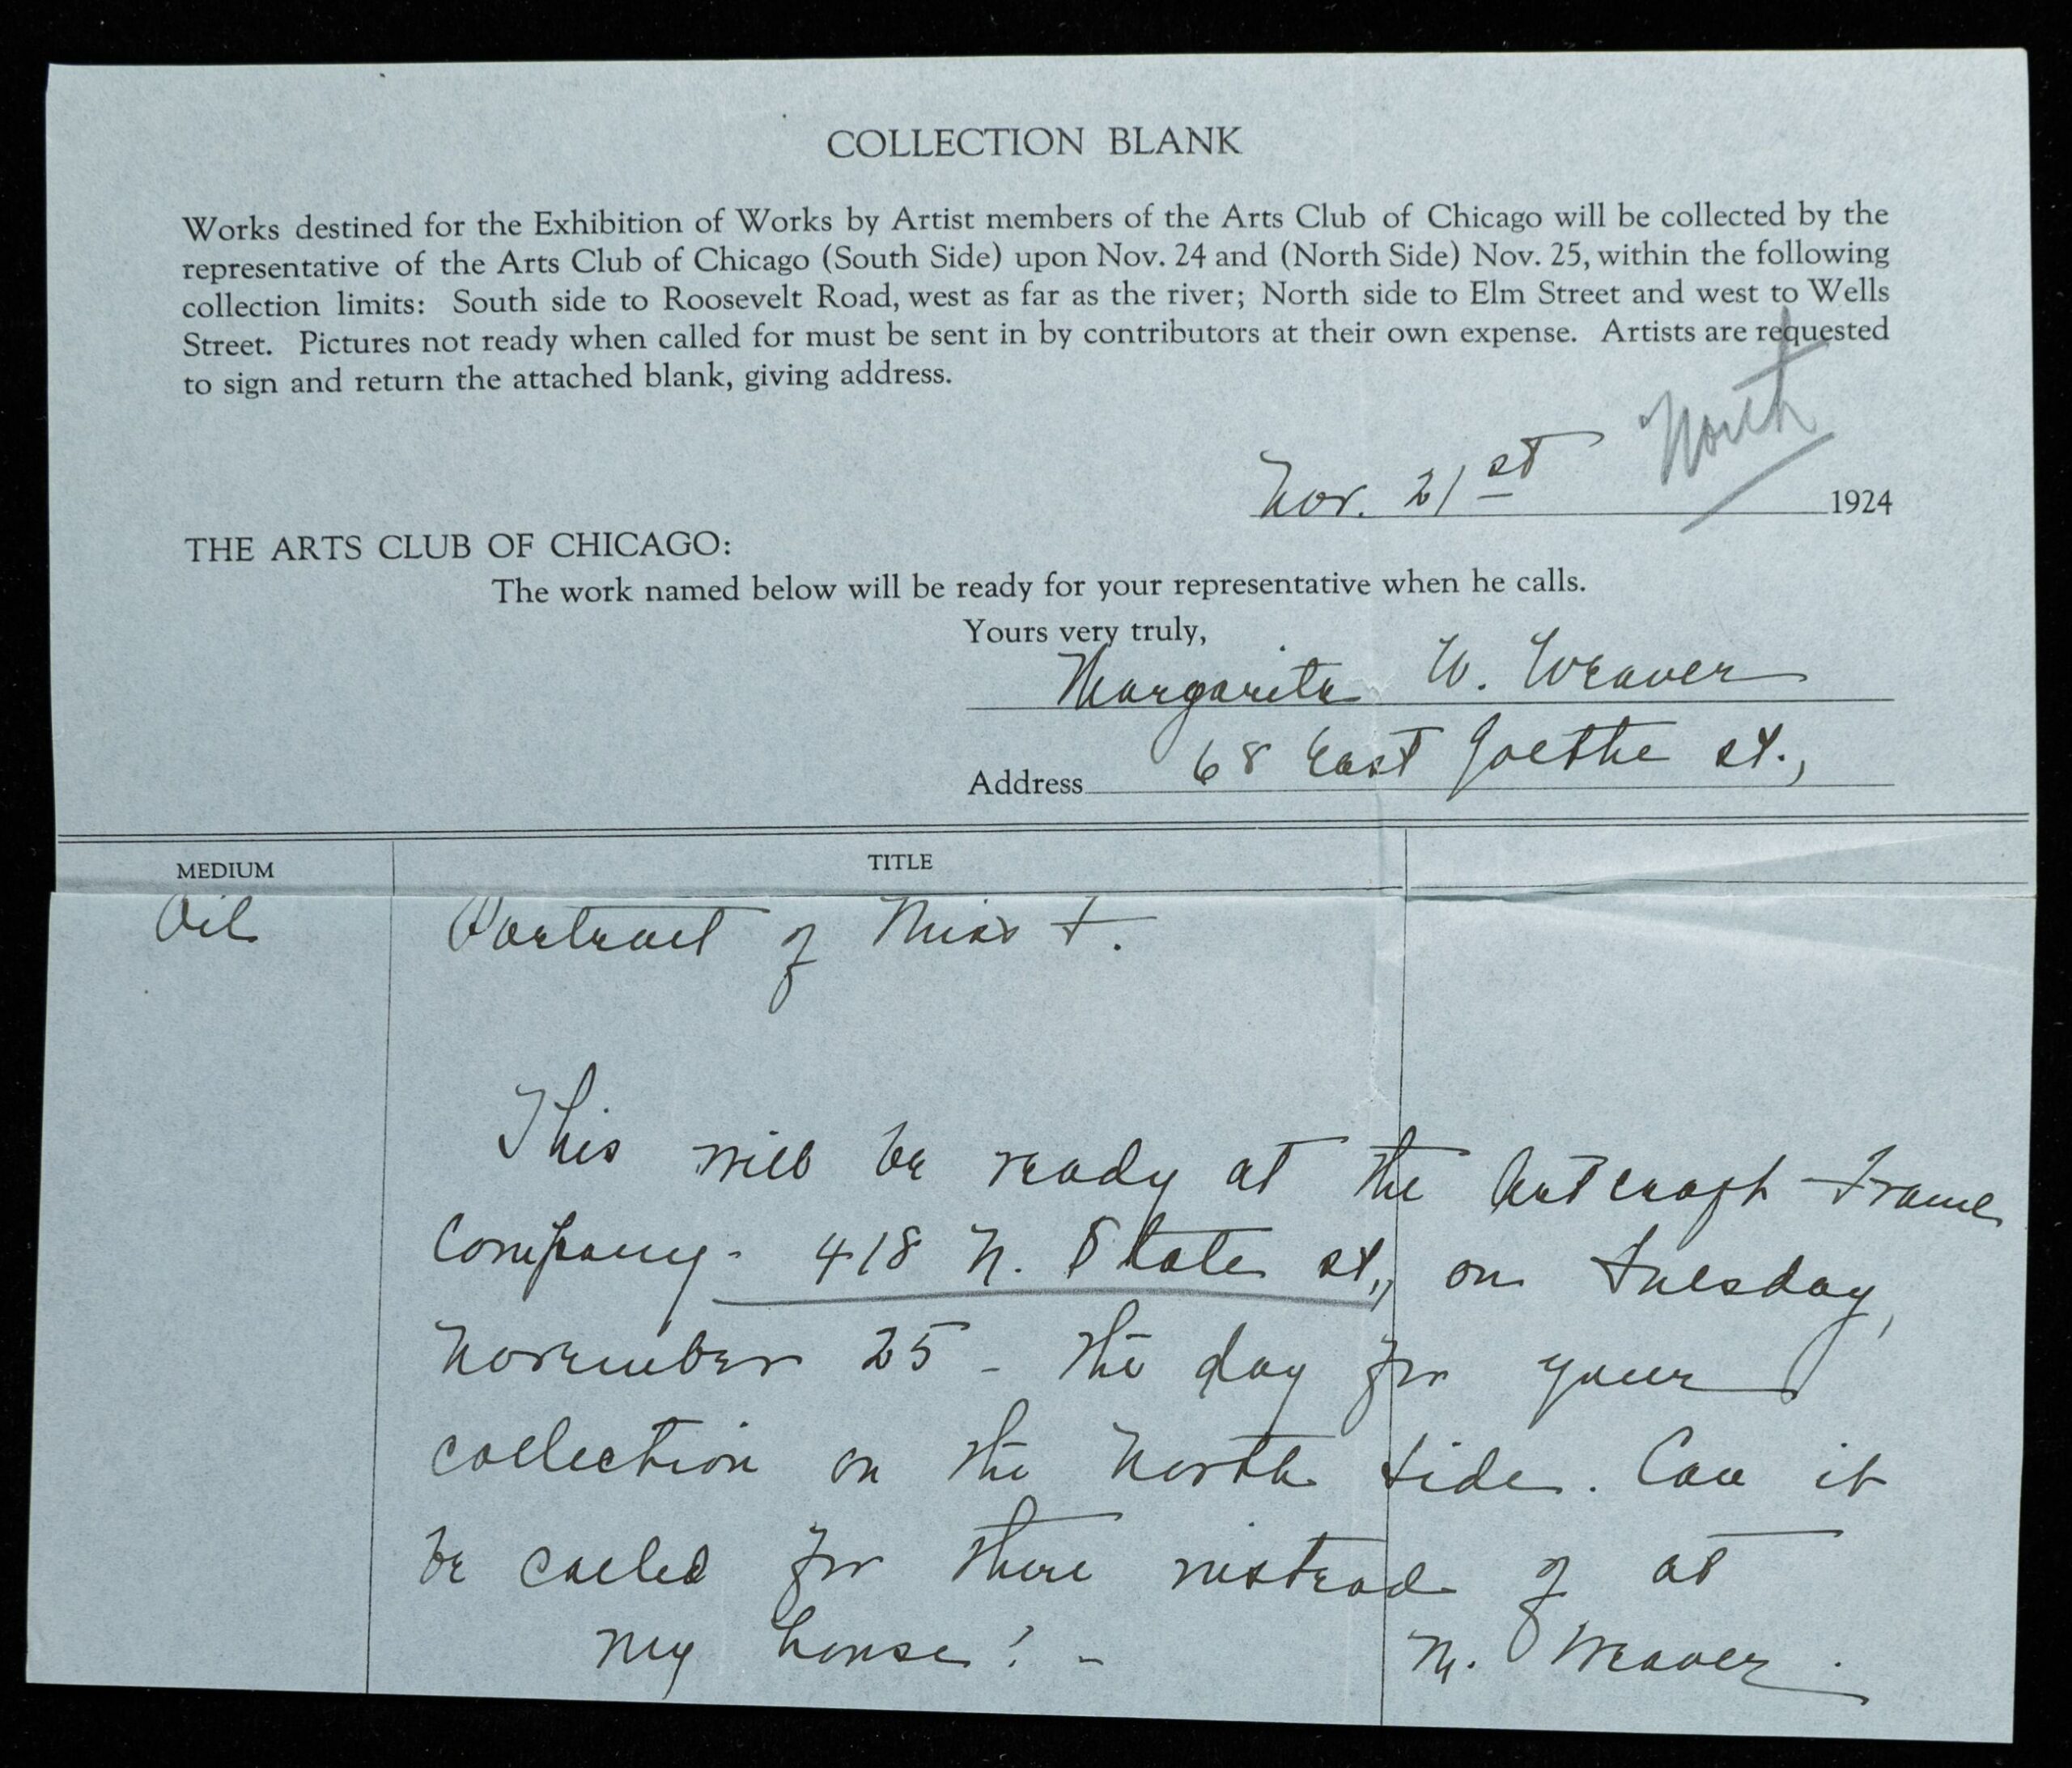 COLLECTION BLANK
Works destined for the Exhibition of Works by Artist members of the Arts Club of Chicago will be collected by the
representative of the Arts Club of Chicago (South Side) upon Nov. 24 and (North Side) Nov. 25, within the following
collection limits: South side to Roosevelt Road, west as far as the river; North side to Elm Street and west to Wells
Street. Pictures not ready when called for must be sent in by contributors at their own expense. Artists are requested
to sign and return the attached blank, giving address.
North
Nov. 21st 1924
THE ARTS CLUB OF CHICAGO:
The work named below will be ready for your representative when he calls.
Yours very truly,
Margarita W. Weaver
Address 68 East Goethe St.,
MEDIUM TITLE
Oil Portrait of Miss T.
This will be ready at the Artcraft Frame
Company - 418 N. State St., on Tuesday,
November 25 - the day for your
collection on the North Side. Can it
be called for there instead of at
my house? -
M. Weaver.